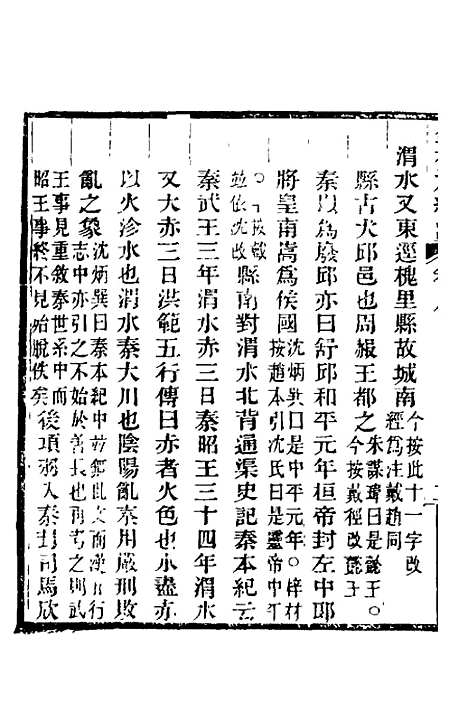 渭水又東逕槐里縣故城南今按此十一字改
經爲注戴趙同
縣古犬邱邑也周赧王都之朱謀㙔曰是懿王○
今按戴徑改懿王
秦以爲廢邱亦曰舒邱和平元年桓帝封左中郎
將皇甫嵩爲侯國沈炳巽曰是中平元年○梓材
按趙本引沈氏曰是靈帝中平
縣南對渭水北背通渠史記秦本紀云
秦武王三年渭水赤三日秦昭王三十四年渭水
又大赤三日洪範五行傳曰赤者火色也水盡赤
以火沴水也渭水秦大川也陰陽亂秦用嚴刑敗
亂之象沈炳巽曰秦本紀中並無此文而漢五行
志中亦引之不始於善長也再考之則武
王事見重敘秦世系中而
昭王事終不見殆脫佚矣後項羽入秦封司馬欣